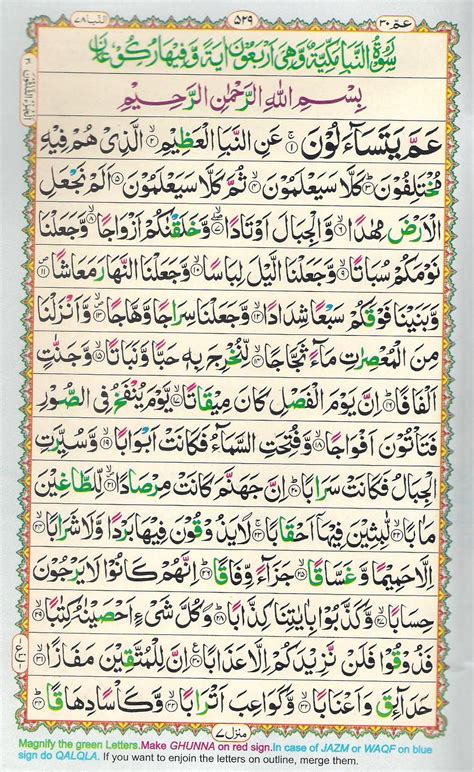 عمّ ٣٠ ٥٢٩ النبا ٧٨
سُوْرَةُ النَّبَاِ مَكِّيَّةٌ وَّهِىَ اَرْبَعُوْنَ اٰيَةً وَّفِيْهَا رُكُوْعَانِ
بِسْمِ اللّٰهِ الرَّحْمٰنِ الرَّحِيْمِ
عَمَّ يَتَسَآءَلُوْنَ ۝١ عَنِ النَّبَاِ الْعَظِيْمِ ۝٢ الَّذِىْ هُمْ فِيْهِ
مُخْتَلِفُوْنَ ۝٣ كَلَّا سَيَعْلَمُوْنَ ۝٤ ثُمَّ كَلَّا سَيَعْلَمُوْنَ ۝٥ اَلَمْ نَجْعَلِ
الْاَرْضَ مِهٰدًا ۝٦ وَّالْجِبَالَ اَوْتَادًا ۝٧ وَّخَلَقْنٰكُمْ اَزْوَاجًا ۝٨ وَّجَعَلْنَا
نَوْمَكُمْ سُبَاتًا ۝٩ وَّجَعَلْنَا الَّيْلَ لِبَاسًا ۝١٠ وَّجَعَلْنَا النَّهَارَ مَعَاشًا ۝١١
وَّبَنَيْنَا فَوْقَكُمْ سَبْعًا شِدَادًا ۝١٢ وَّجَعَلْنَا سِرَاجًا وَّهَّاجًا ۝١٣ وَّاَنْزَلْنَا
مِنَ الْمُعْصِرٰتِ مَآءً ثَجَّاجًا ۝١٤ لِّنُخْرِجَ بِهٖ حَبًّا وَّنَبَاتًا ۝١٥ وَّجَنّٰتٍ
اَلْفَافًا ۝١٦ اِنَّ يَوْمَ الْفَصْلِ كَانَ مِيْقَاتًا ۝١٧ يَّوْمَ يُنْفَخُ فِى الصُّوْرِ
فَتَاْتُوْنَ اَفْوَاجًا ۝١٨ وَّفُتِحَتِ السَّمَآءُ فَكَانَتْ اَبْوَابًا ۝١٩ وَّسُيِّرَتِ
الْجِبَالُ فَكَانَتْ سَرَابًا ۝٢٠ اِنَّ جَهَنَّمَ كَانَتْ مِرْصَادًا ۝٢١ لِّلطَّاغِيْنَ
مَاٰبًا ۝٢٢ لّٰبِثِيْنَ فِيْهَآ اَحْقَابًا ۝٢٣ لَا يَذُوْقُوْنَ فِيْهَا بَرْدًا وَّلَا شَرَابًا ۝٢٤
اِلَّا حَمِيْمًا وَّغَسَّاقًا ۝٢٥ جَزَآءً وِّفَاقًا ۝٢٦ اِنَّهُمْ كَانُوْا لَا يَرْجُوْنَ
حِسَابًا ۝٢٧ وَّكَذَّبُوْا بِاٰيٰتِنَا كِذَّابًا ۝٢٨ وَكُلَّ شَىْءٍ اَحْصَيْنٰهُ كِتٰبًا ۝٢٩
فَذُوْقُوْا فَلَنْ نَّزِيْدَكُمْ اِلَّا عَذَابًا ۝٣٠ اِنَّ لِلْمُتَّقِيْنَ مَفَازًا ۝٣١
حَدَآئِقَ وَاَعْنَابًا ۝٣٢ وَّكَوَاعِبَ اَتْرَابًا ۝٣٣ وَّكَاْسًا دِهَاقًا ۝٣٤
منزل ٧
Magnify the green Letters.Make GHUNNA on red sign.In case of JAZM or WAQF on blue
sign do QALQLA. If you want to enjoin the letters on outline, merge them.